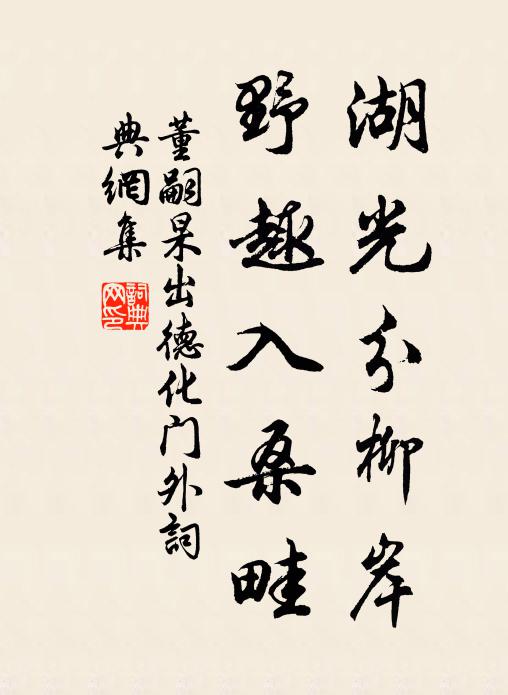 湖光分柳岸
野趣入桑畦
董嗣杲出德化门外詞
典網集
詞典网印